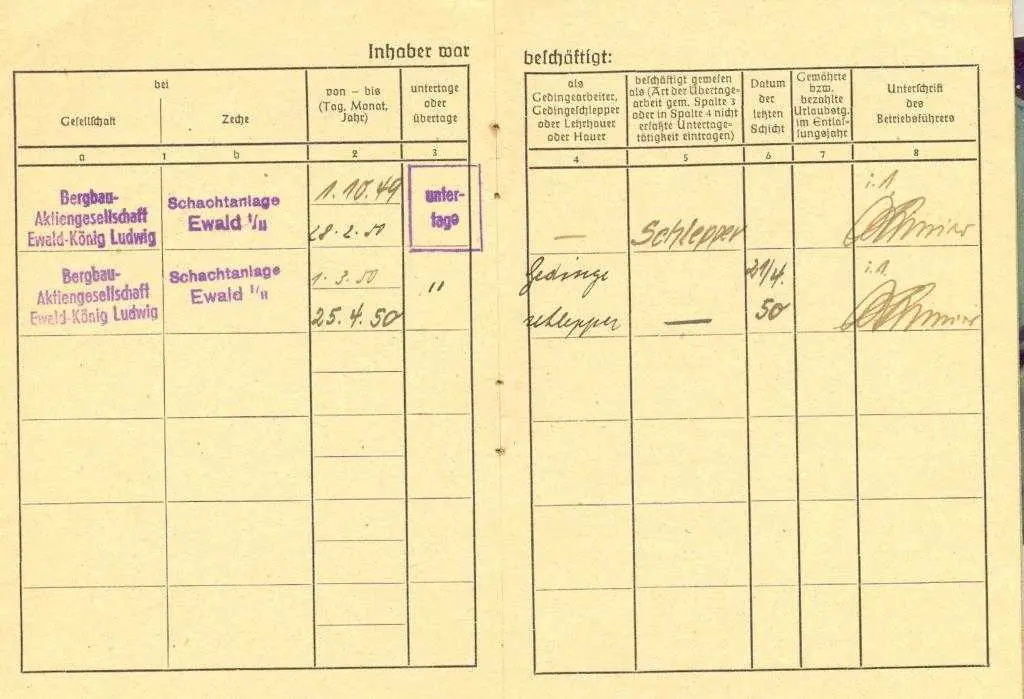 Inhaber war
beschäftigt:
bei
Gesellschaft
Zeche
von – bis
(Tag, Monat,
Jahr)
untertage
oder
übertage
als
Gedingearbeiter,
Gedingeschlepper
oder Lehrhauer
oder Hauer
beschäftigt gewesen
als (Art der Übertage-
arbeit gem. Spalte 3
oder in Spalte 4 nicht
erfaßte Untertage-
tätigkeit eintragen)
Datum
der
letzten
Schicht
Gewährte
bzw.
bezahlte
Urlaubstg.
im Entlas-
sungsjahr
Unterschrift
des
Betriebsführers
a
1
b
2
3
4
5
6
7
8
Bergbau-
Aktiengesellschaft
Ewald-König Ludwig
Schachtanlage
Ewald I/II
1. 10. 49
28. 2. 50
unter-
tage
—
Schlepper
Bergbau-
Aktiengesellschaft
Ewald-König Ludwig
Schachtanlage
Ewald I/II
1. 3. 50
25. 4. 50
"
Gedinge
schlepper
—
21/4.
50